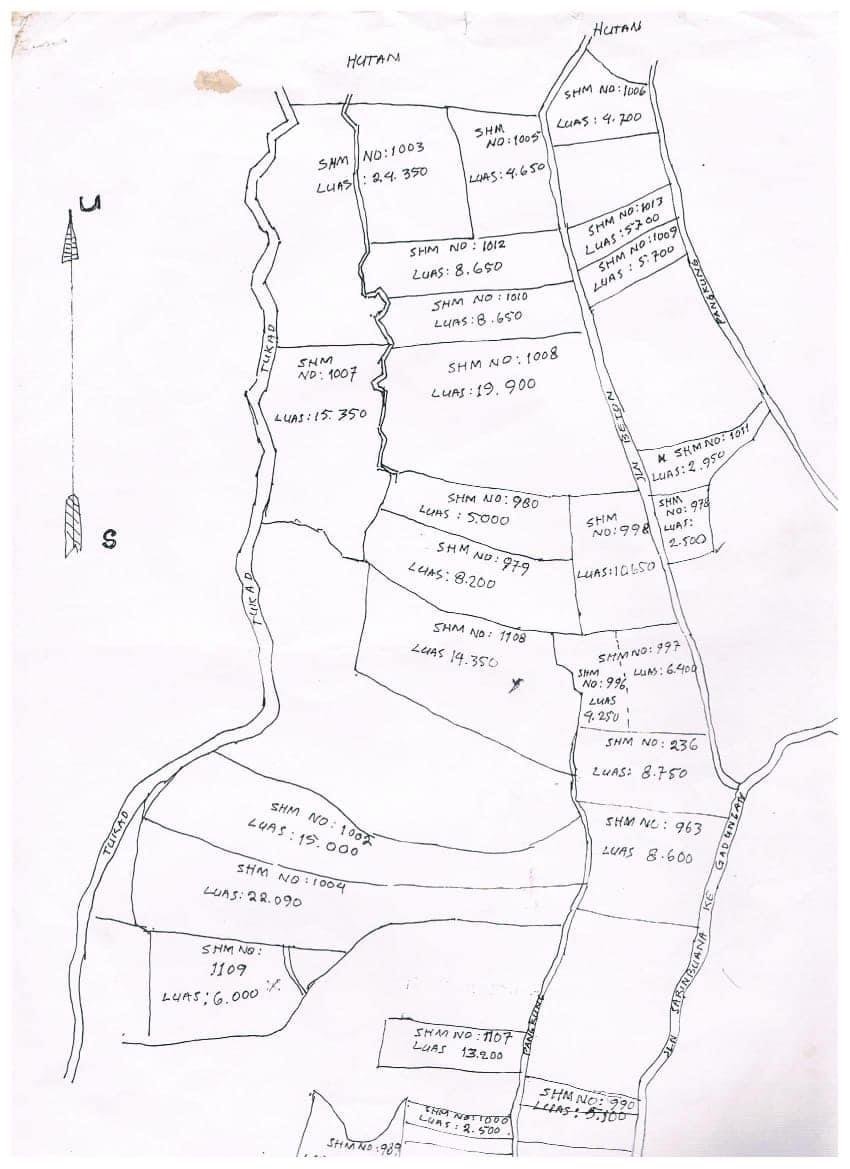 HUTAN
HUTAN
SHM NO:1006
LUAS: 4.700
SHM NO:1003
LUAS: 24.350
SHM
NO:1005
LUAS: 4.650
U
SHM NO:1013
LUAS: 5700
SHM NO:1009
LUAS: 5.700
SHM NO: 1012
LUAS: 8.650
SHM NO: 1010
LUAS: 8.650
PANGKUNG
TUKAD
SHM
NO:1007
LUAS: 15.350
SHM NO:1008
LUAS: 19.900
JLN BETON
SHM NO:1011
LUAS: 2.950
SHM NO: 980
LUAS: 5.000
SHM
NO: 998
LUAS: 10.650
SHM
NO: 978
LUAS:
2.500
S
SHM NO: 979
LUAS: 8.200
TUKAD
SHM NO: 1108
LUAS 14.350
SHM NO: 997
LUAS: 6.400
SHM
NO: 996
LUAS
4.250
SHM NO: 236
LUAS: 8.750
SHM NO: 1002
LUAS: 15.000
TUKAD
SHM NO: 963
LUAS 8.600
SHM NO: 1004
LUAS: 22.090
JLN SARINBUANA KE GADUNGAN
SHM NO:
1109
LUAS: 6.000
PANGKUNG
SHM NO: 1107
LUAS 13.200
SHM NO: 990
SHM NO: 1000
LUAS: 2.500
SHM NO: 989